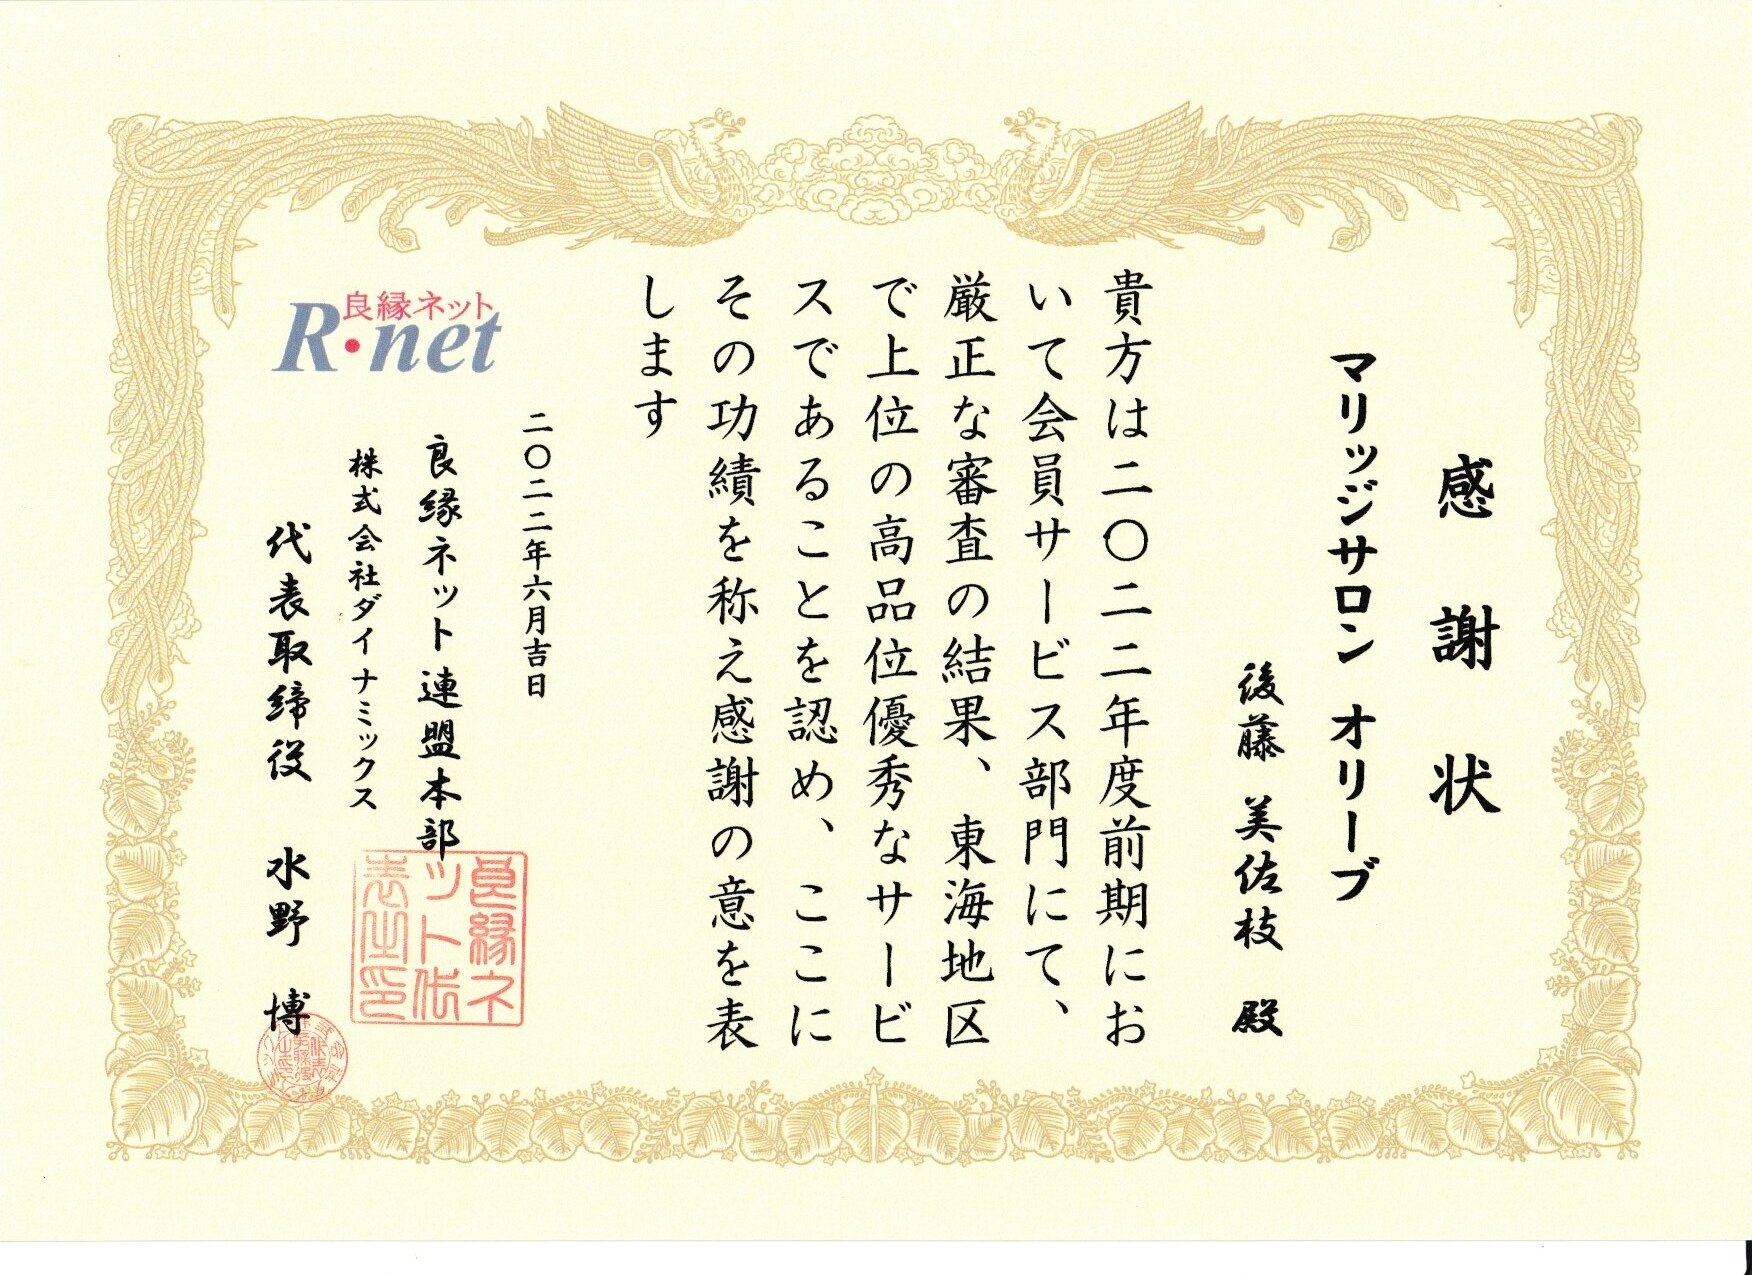 感謝状
マリッジサロン オリーブ
後藤 美佐枝 殿
貴方は二〇二二年度前期にお
いて会員サービス部門にて、
厳正な審査の結果、東海地区
で上位の高品位優秀なサービ
スであることを認め、ここに
その功績を称え感謝の意を表
します
二〇二二年六月吉日
良縁ネット連盟本部
株式会社ダイナミックス
代表取締役 水野 博
良縁ネット
R・net
良縁ネ
ット代
表之印